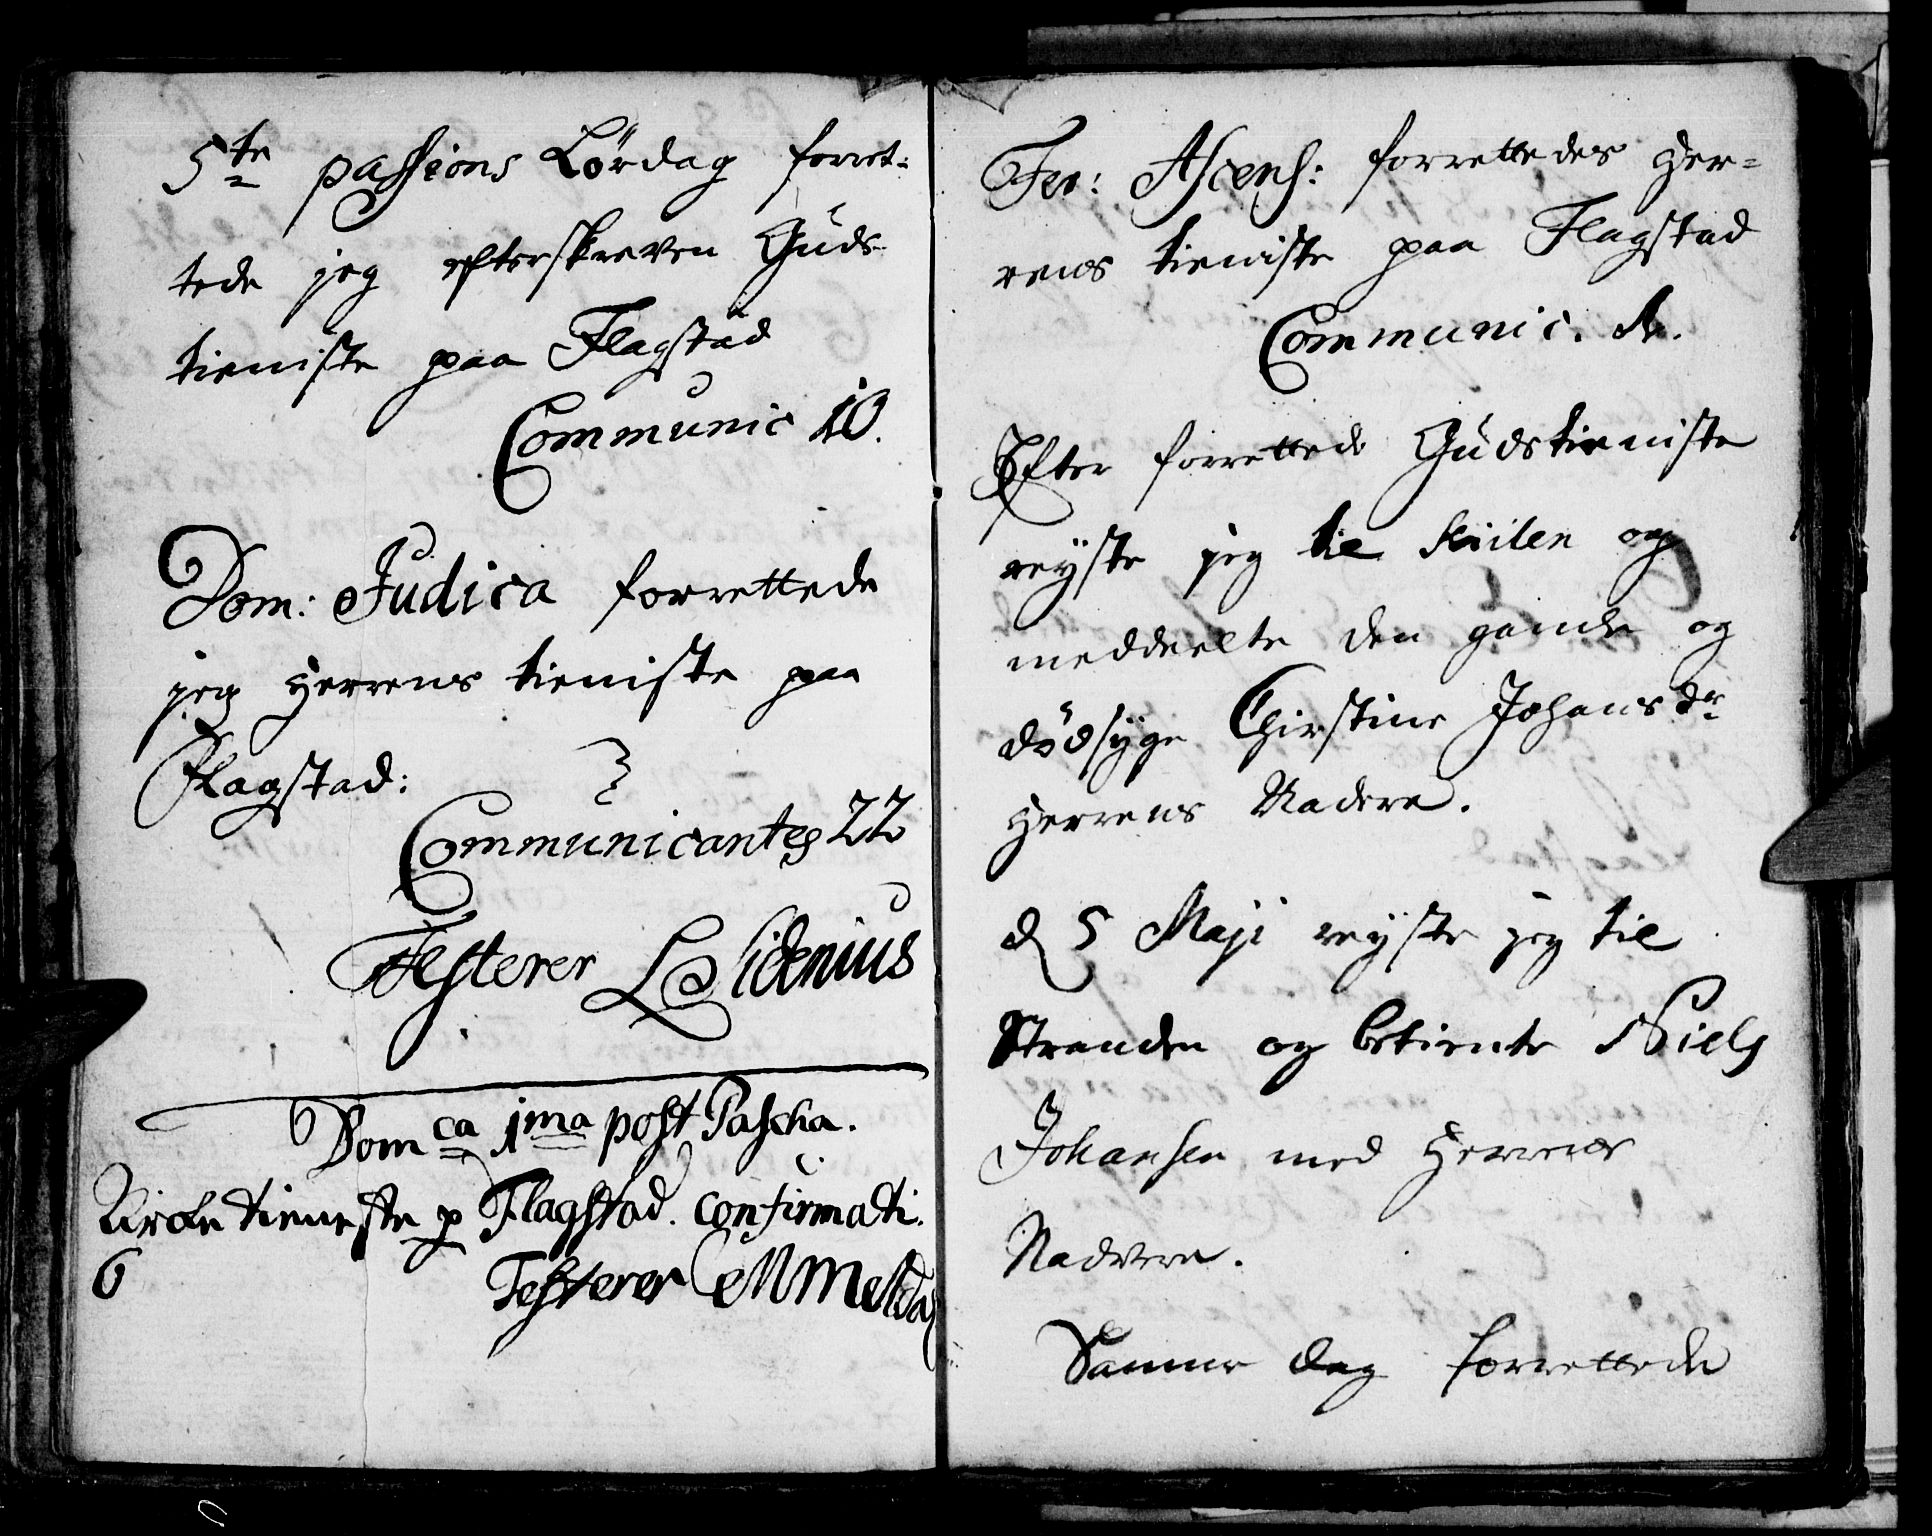 5te passions Lördag forret-
tede jeg efterskreven Guds
tieniste paa Flagstad
Communic 10.
Dom: Judica forrettede
jeg Herrens tieniste paa
Flagstad:
Communicantes 22
Testerer L Sidenius
Domca 1ma post Pascha.
Kircketieneste p Flagstad. confirmati.
6
Testerer
Fer: Ascens: forrettedes Her-
rens tieniste paa Flagstad
Communic.
Efter forrettede Gudstieniste
reyste jeg til og
meddeelte den gamle og
dödsyge Chirstine Johansdr
Herrens Nadvere.
d 5 Maji reyste jeg til
Stranden og betiente Niels
Johansen med Herrens
Nadvere.
Samme dag forrettede